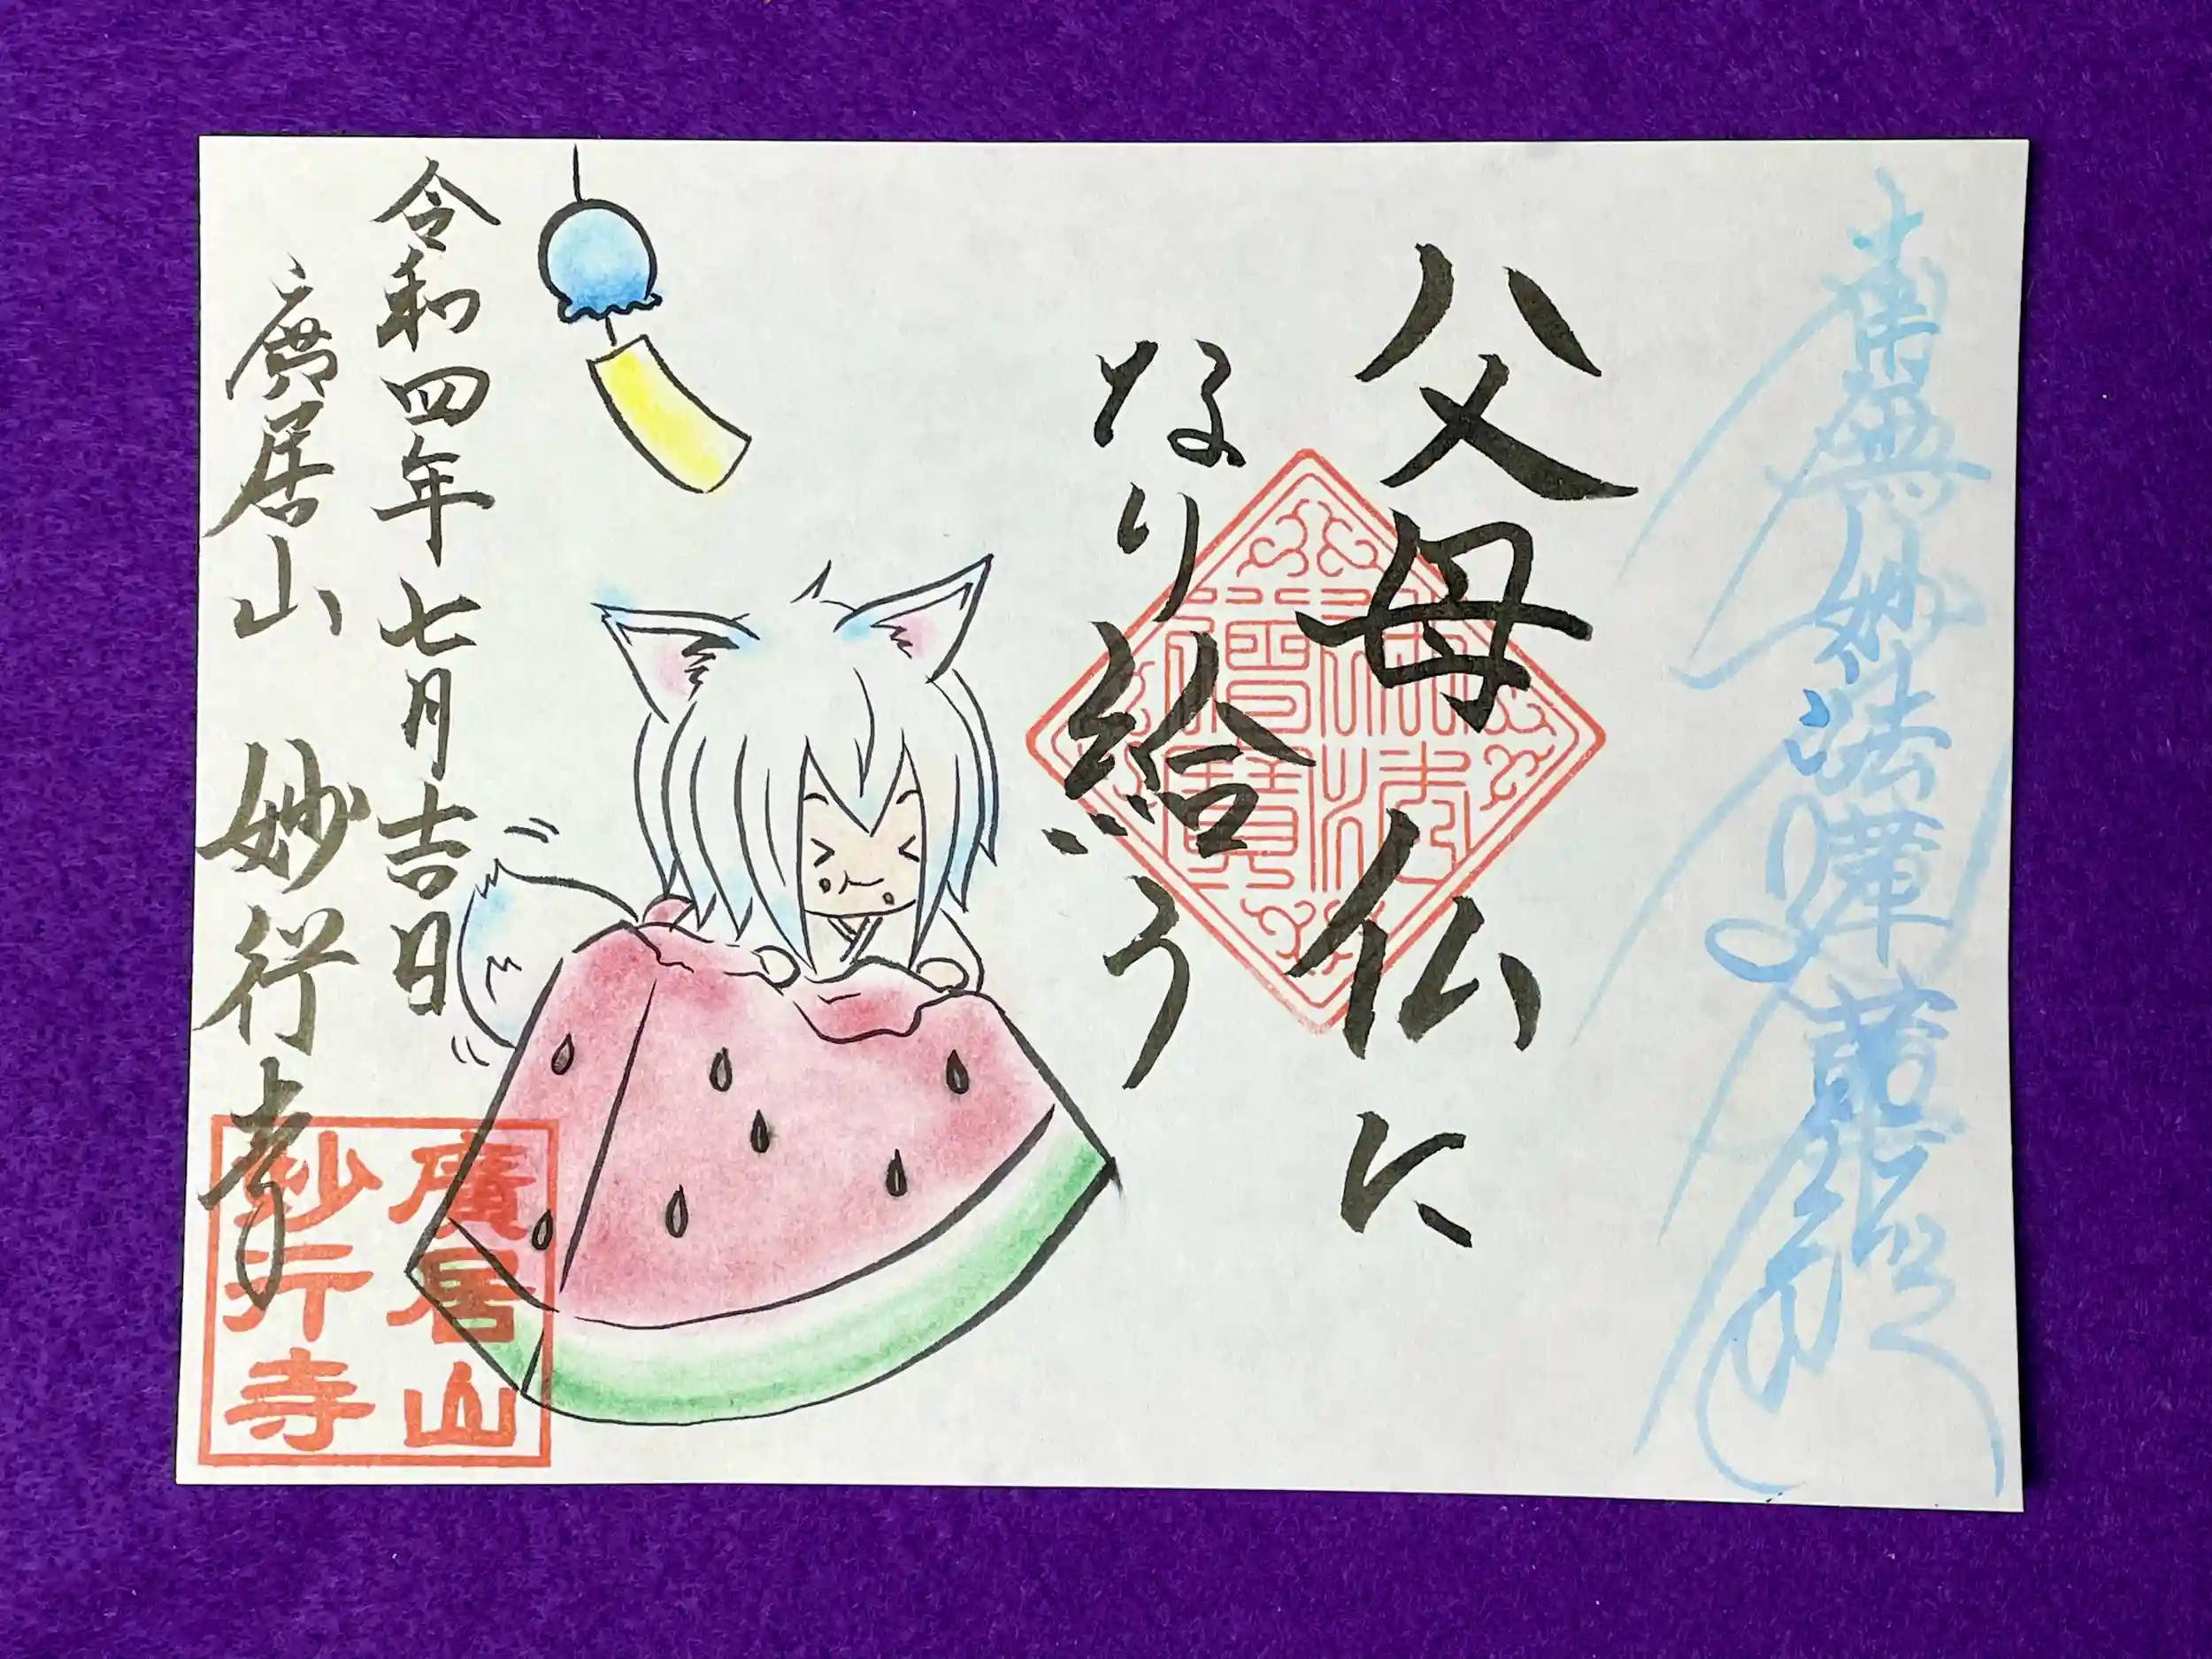 南無妙法蓮華経
父母仏に
なり給う
令和四年七月吉日
廣居山 妙行寺
佛法僧寳
廣居山
妙行寺